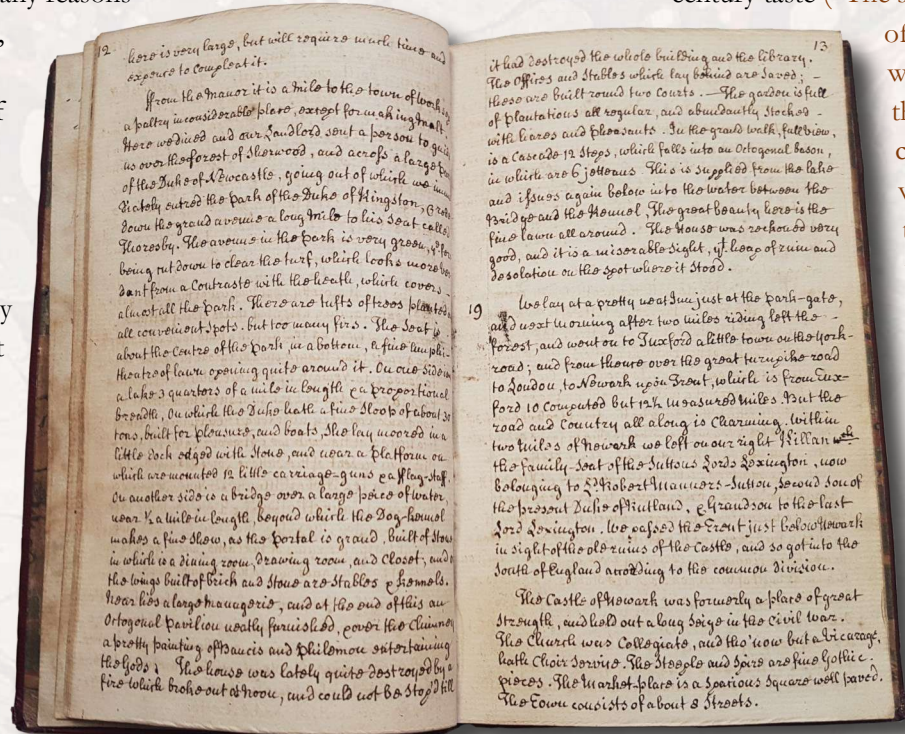 any reasons
,
f
y
t
12
here is very large, but will require much time and
expence to compleat it.
From the Manor it is a mile to the town of
a paltry inconsiderable place, except for making Malt.
Here we dined and our Landlord sent a person to
us over the forest of Sherwood, and across a large
of the Duke of Newcastle, going out of which we
diately entred the park of the Duke of Kingston, &
down the grand avenue a long mile to his Seat called
Thoresby. The avenue in the Park is very green,
being cut down to clear the turf, which looks more
dant from a Contraste with the heath, which covers
almost all the park. There are tufts of trees planted
all convenient spots. but too many firs. The Seat is
about the Centre of the Park, in a bottom, a fine Amphi-
theatre of lawn opening quite around it. On one side
a lake 3 quarters of a mile in length & a proportional
breadth, On which the Duke hath a fine Sloop of about 30
tons, built for pleasure, and boats, She lay moored in a
little Dock edged with Stone, and near a Platform on
which are mounted 12 little carriage-guns & a fflag-staff.
On another side is a bridge over a large peice of water,
near ½ a mile in length, beyond which the Dog-kennel
makes a fine shew, as the Portal is grand, built of Stone
in which is a dining room, drawing room, and Closet, and
the wings built of Brick and Stone are Stables & Kennels.
Near lies a large managerie, and at the end of this an
Octogonal Pavilion neatly furnished, & over the Chimney
a pretty painting of Baucis and Philemon entertaining
the Gods. The house was lately quite destroyed by a
fire which broke out at Noon, and could not be Stop'd till
13
it had destroyed the whole building and the library.
The Offices and Stables which lay behind are Saved; -
these are built round two Courts. — The garden is full
of plantations all regular, and abundantly Stocked -
with hares and pheasants. In the grand walk, full view,
is a Cascade 12 Steps, which falls into an Octogonal bason,
in which are 6 jetteaus. This is supplied from the lake
and issues again below into the water between the
Bridge and the Kennel. The great beauty here is the
fine lawn all around. The House was reckoned very
good, and it is a miserable Sight, yt. heap of ruin and
desolation on the spot where it stood.
19
We lay at a pretty neat Inn just at the park-gate,
and next morning after two miles riding left the -
forest, and went on to Tuxford a little town on the York-
road; and from thence over the great turnpike road
to London, to Newark upon Trent, which is from Tux-
ford 10 Computed but 12½ measured miles. But the
road and Country all along is Charming. Within
two miles of Newark we left on our right Killam wch
the family-Seat of the Suttons Lords Lexington, now
belonging to Ld Robert Manners-Sutton, Second son of
the present Duke of Rutland, & Grandson to the last
Lord Lexington. We passed the Trent just below Newark
in sight of the old ruins of the Castle, and so got into the
South of England according to the common division.
The Castle of Newark was formerly a place of great
Strength, and held out a long Seige in the Civil War.
The Church was Collegiate, and tho' now but a Vicarage,
hath Choir Service. The Steeple and Spire are fine Gothic
pieces. The Market-place is a Spacious Square well paved.
The Town consists of about 8 Streets.
century taste ("The s
of
w
th
c
v
t